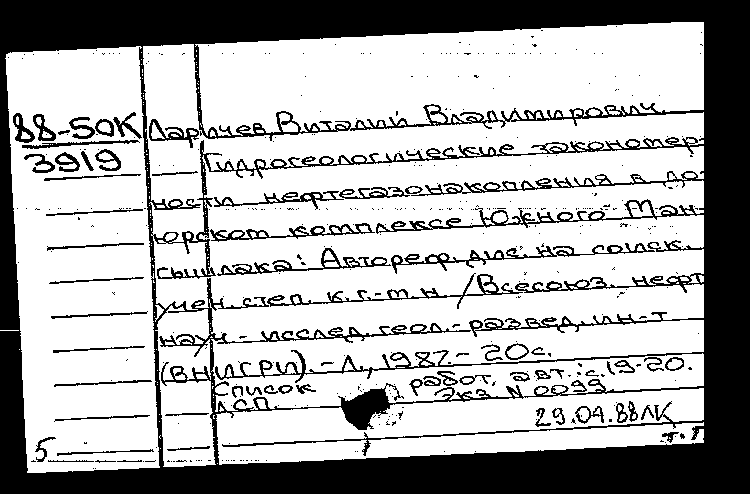 88-50К Ларичев, Виталий Владимирович.
3919 Гидрогеологические закономер-
ности нефтегазонакопления в до-
юрском комплексе Южного Ман-
гышлака: Автореф. дис. на соиск.
учен. степ. к.г.-м.н. /Всесоюз. нефт.
науч.-исслед. геол.-развед. ин-т
(ВНИГРИ). - Л., 1987. - 20с.
Список работ. авт.: с.19-20.
ДСП. Экз N 0099.
29.04.88ЛК
5